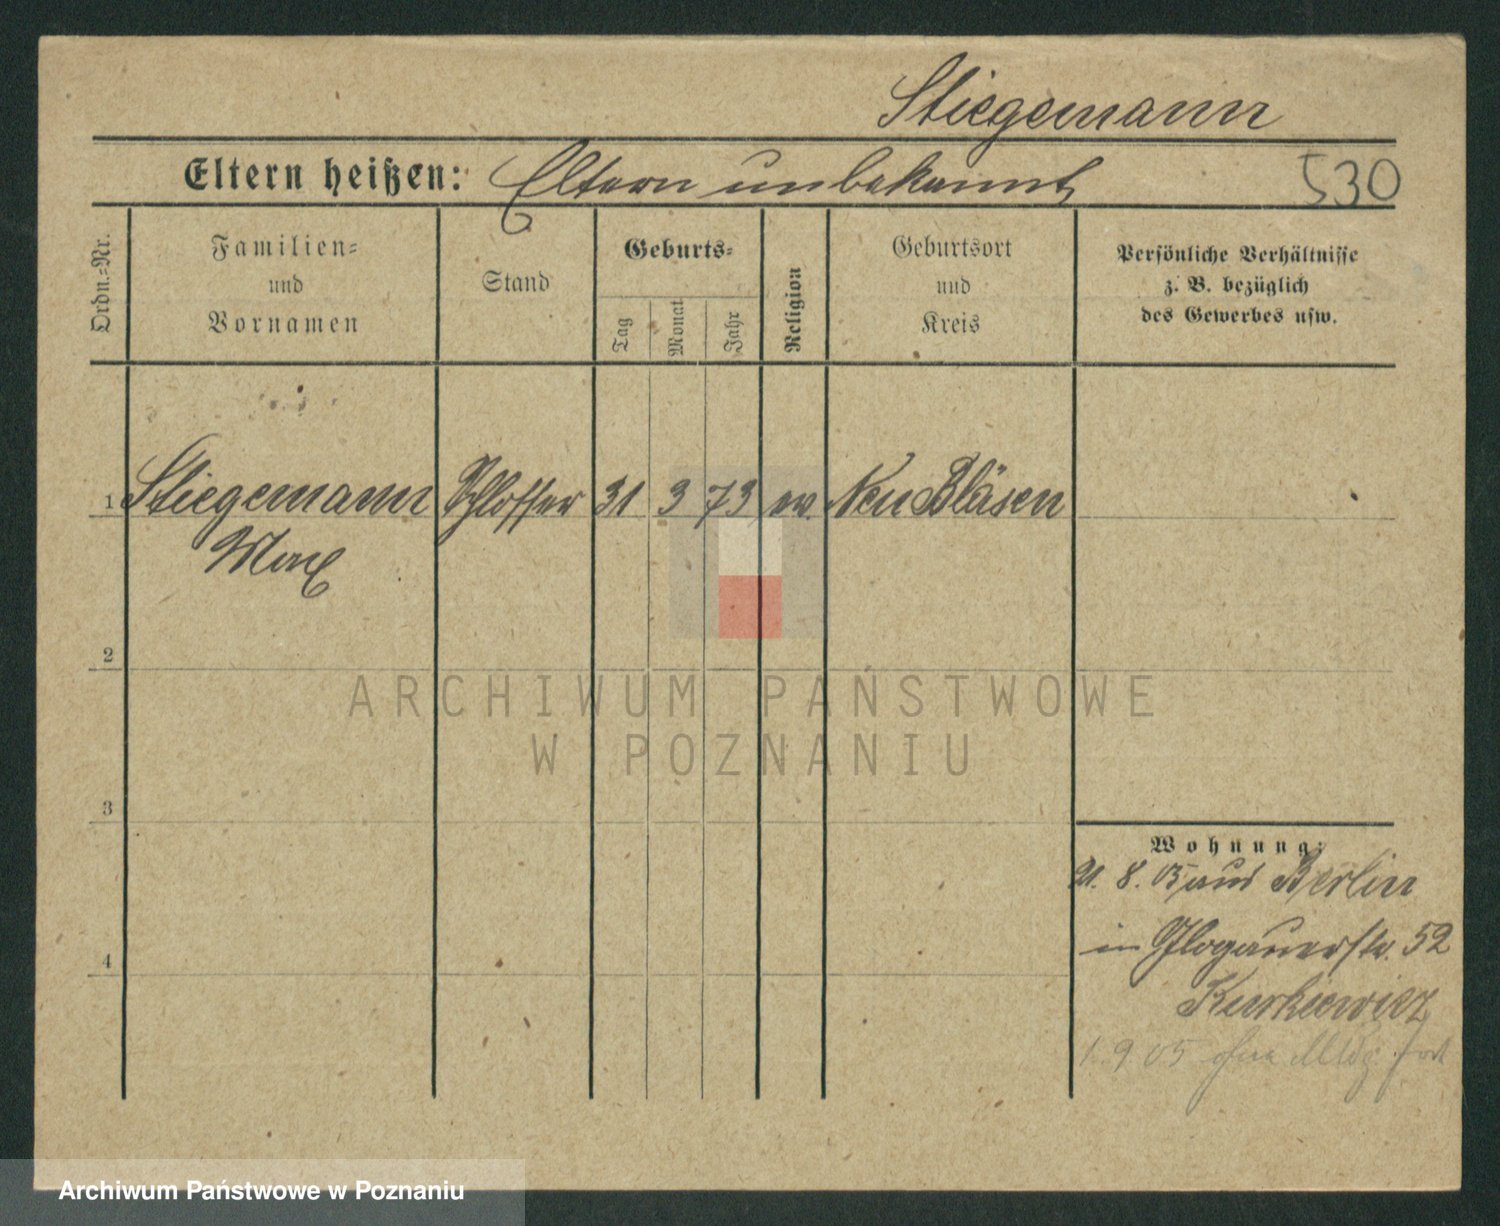 Stiegemann
Eltern heißen: Eltern unbekannt
530
Ordn.=Nr.
Familien=
und
Vornamen
Stand
Geburts=
Tag
Monat
Jahr
Religion
Geburtsort
und
Kreis
Persönliche Verhältnisse
z. B. bezüglich
des Gewerbes usw.
1 Stiegemann Schlosser 31 3 73 ev. Neu Bläsen
Max
2
ARCHIWUM PAŃSTWOWE
W POZNANIU
3
Wohnung:
21. 8. 05 aus Berlin
in Glogauerstr. 52
Kurkiewicz
4
1. 9. 05 ohne Mldg. fort
Archiwum Państwowe w Poznaniu